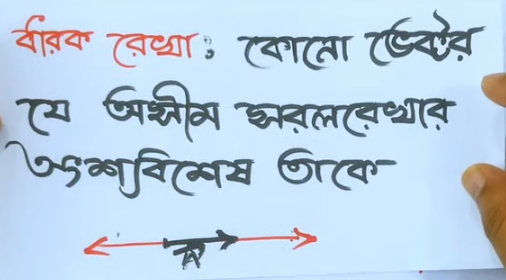 বারক রেখা: কোনো ভেক্টর
যে অসীম সরলরেখার
অংশবিশেষ তাকে
A